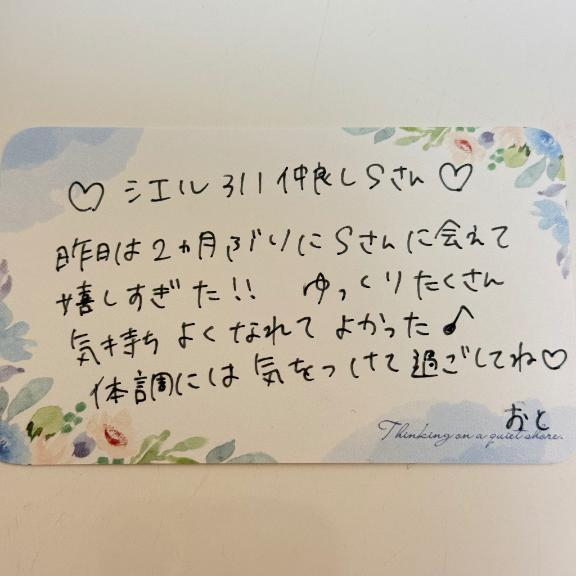 ♡ シエル 311 仲良しSさん ♡
昨日は2ヵ月ぶりにSさんに会えて
嬉しすぎた!! ゆっくりたくさん
気持ちよくなれてよかった♪
体調には気をつけて過ごしてね♡
おと
Thinking on a quiet shore.